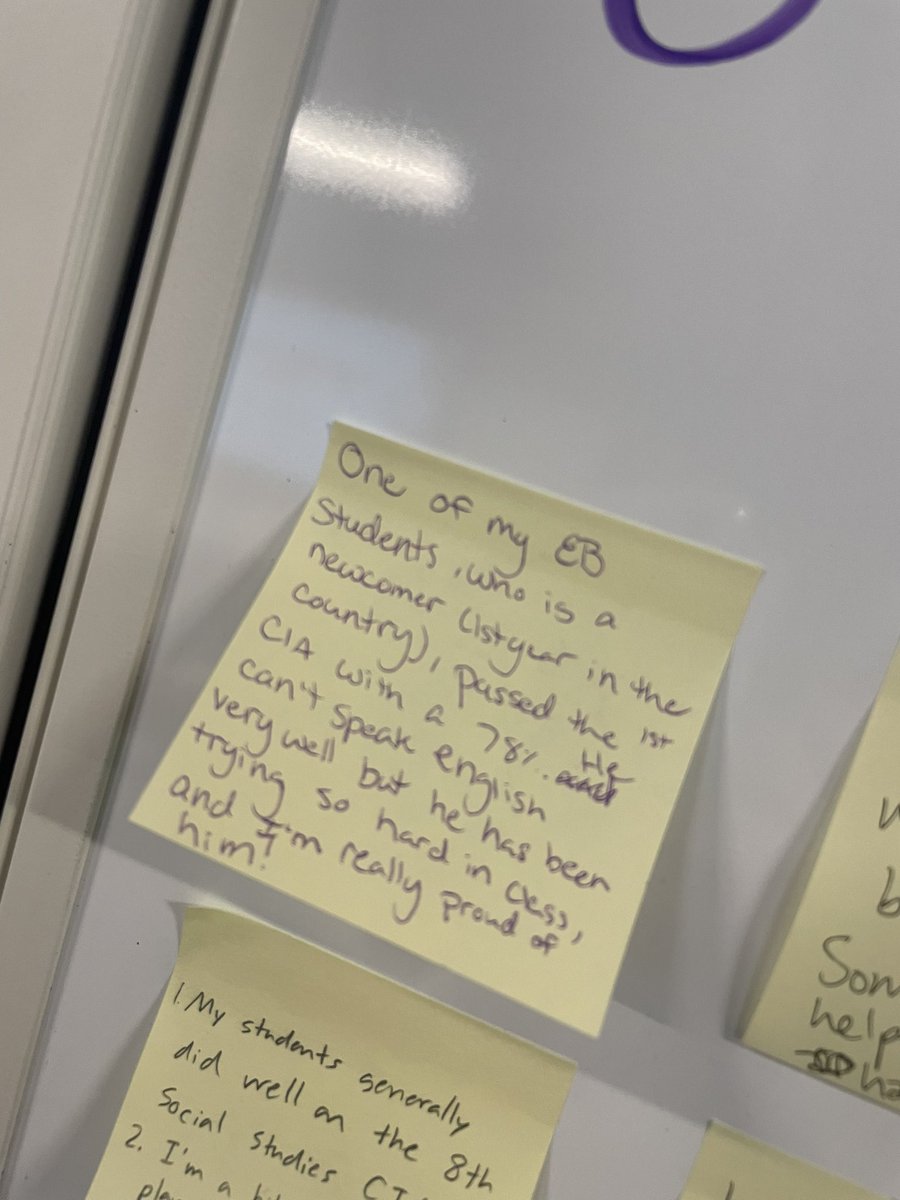 One of my EB
Students, who is a
newcomer (1st year in the
country), passed the 1st
CIA with a 78%. He
can't speak english
very well but he has been
trying so hard in class,
and I'm really proud of
him!
1. My students generally
did well on the 8th
Social Studies
2. I'm a
help